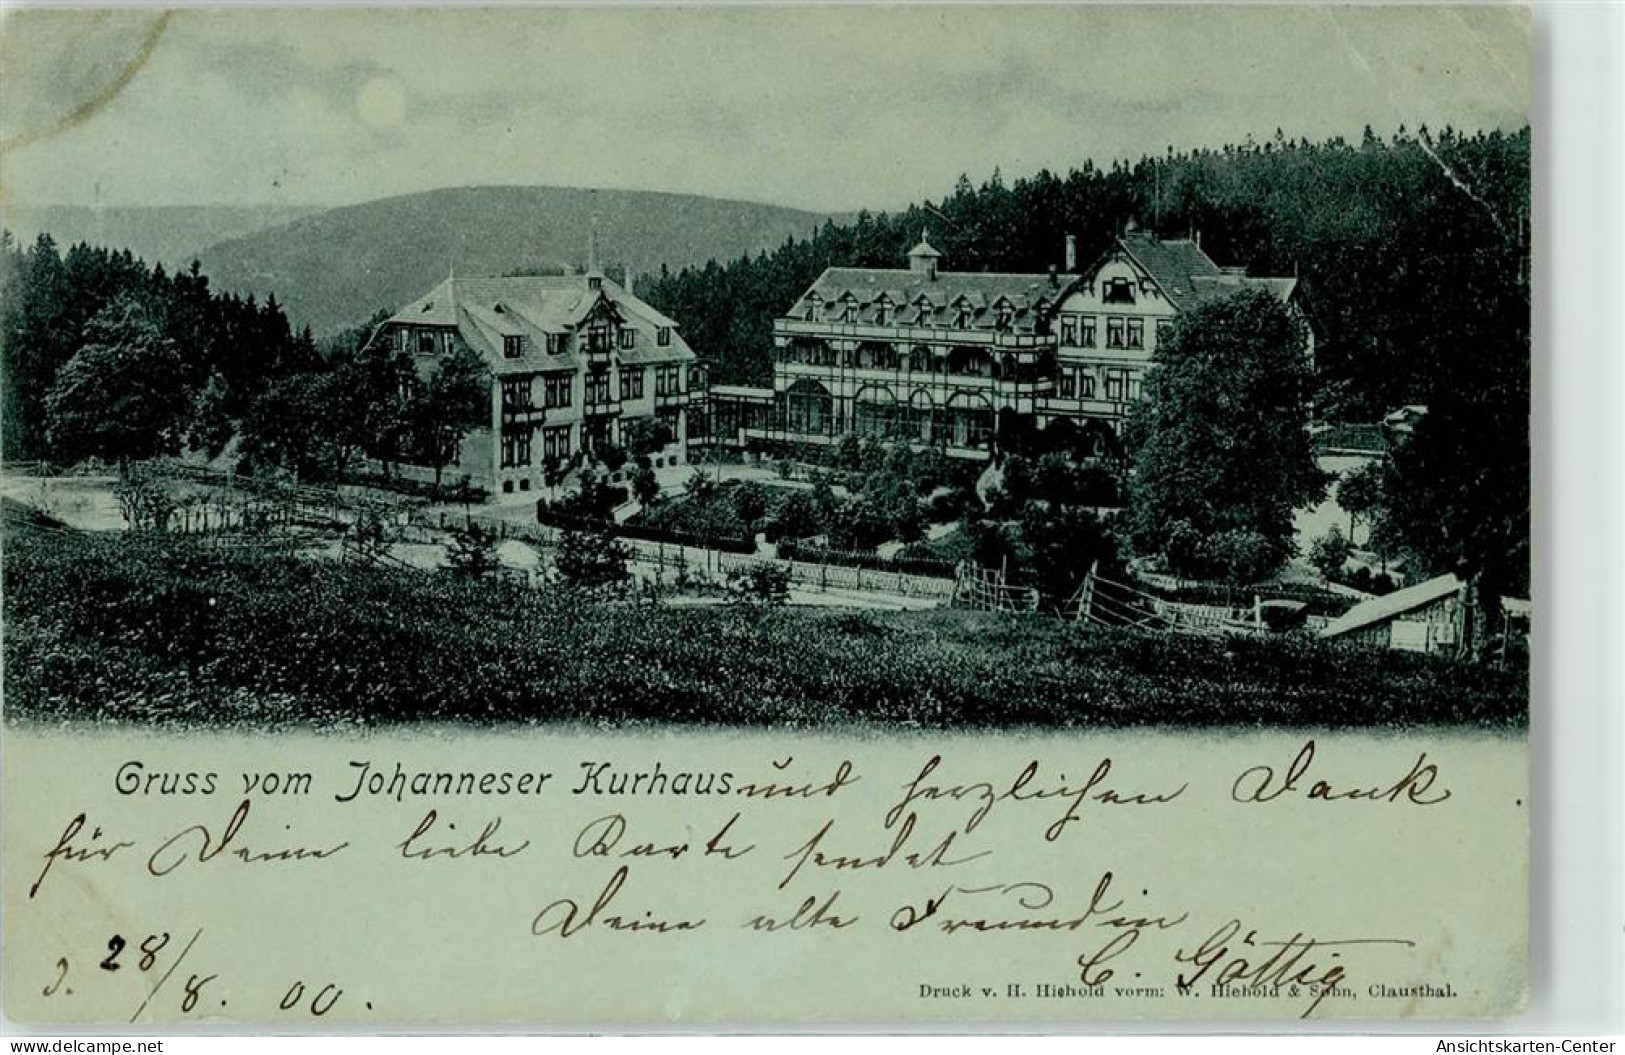 Gruss vom Johanneser Kurhaus und herzlichen Dank
für Deine liebe Karte sendet
Deine alte Freundin
C. Göttig
d. 28/8. 00.
Druck v. H. Hiehold vorm: W. Hiehold & Sohn, Clausthal.
www.delcampe.net
Ansichtskarten-Center